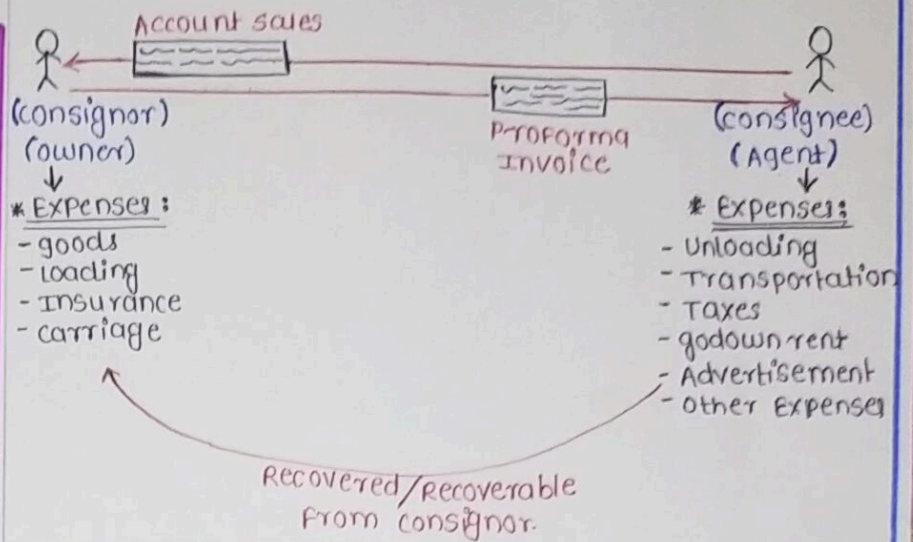 Account sales
Proforma
Invoice
(consignor)
(owner)
* Expenses :
- goods
- Loading
- Insurance
- carriage
(consignee)
(Agent)
* Expenses:
- Unloading
- Transportation
- Taxes
- godown rent
- Advertisement
- Other Expenses
Recovered/Recoverable
From consignor.